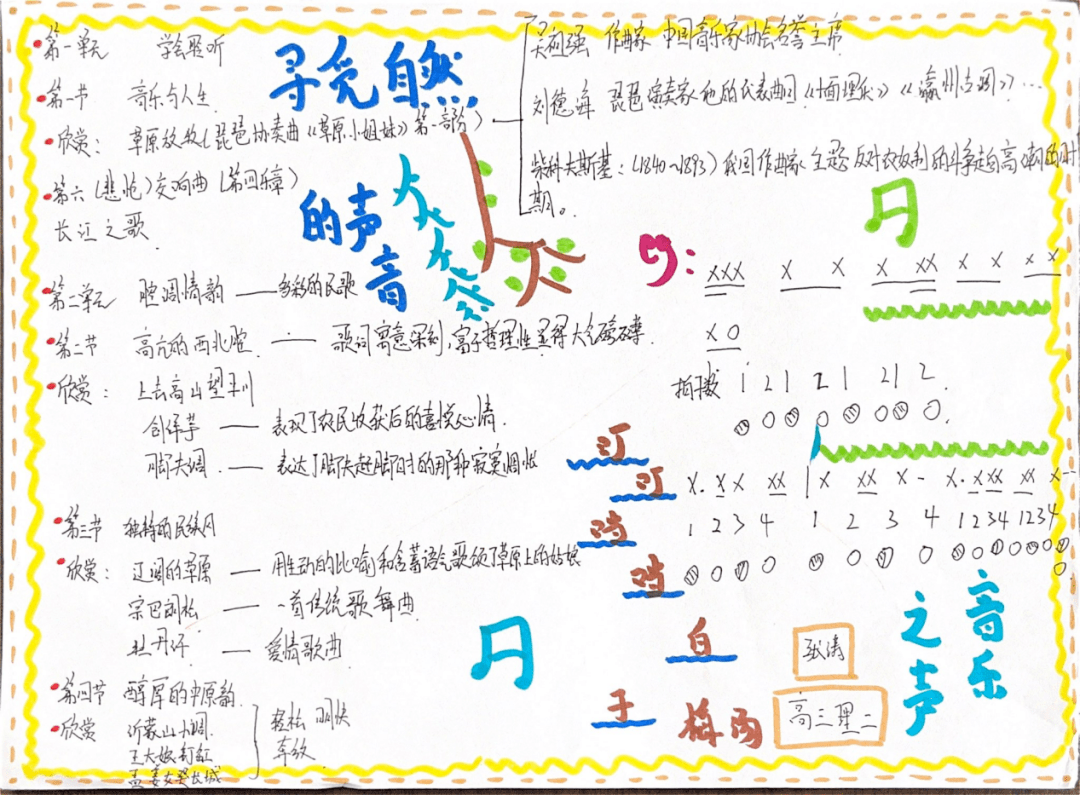 第一单元 学会聆听
第一节 音乐与人生
欣赏: 草原放牧(琵琶协奏曲《草原小姐妹》第一部分)
第六(悲怆)交响曲(第四乐章)
长江之歌
寻觅自然
的声音
大
自
然
吴祖强 作曲家 中国音乐家协会名誉主席
刘德海 琵琶演奏家 他的代表曲目《十面埋伏》《瀛州古调》…
柴科夫斯基:(1840~1893)俄国作曲家 主题 反对农奴制的斗争走向高潮的时期。
第二单元 腔调情韵 — 多彩的民歌
第二节 高亢的西北腔 — 歌词寓意深刻,富于哲理性显得大气磅礴
欣赏: 上去高山望平川
刨洋芋 — 表现了农民收获后的喜悦心情.
脚夫调 — 表达了脚夫赶脚时的那种寂寞惆怅
第三节 独特的民族风
欣赏: 辽阔的草原 — 用生动的比喻和含蓄语气歌颂了草原上的姑娘
宗巴朗松 — 一首传统歌舞曲
牡丹汗 — 爱情歌曲
第四节 醇厚的中原韵
欣赏 沂蒙山小调
王大娘钉缸
孟姜女哭长城
轻松 明快
xxx x x x xx x x x x
x 0
拍子数 1 2 1 2 1 2 1 2.
x. x x xx | x xx x - x. x xx xx x -
1 2 3 4 1 2 3 4 1 2 3 4 1 2 3 4
汀
汀
鸣
自
于
梅雨
张涛
高三理二
音乐
之声